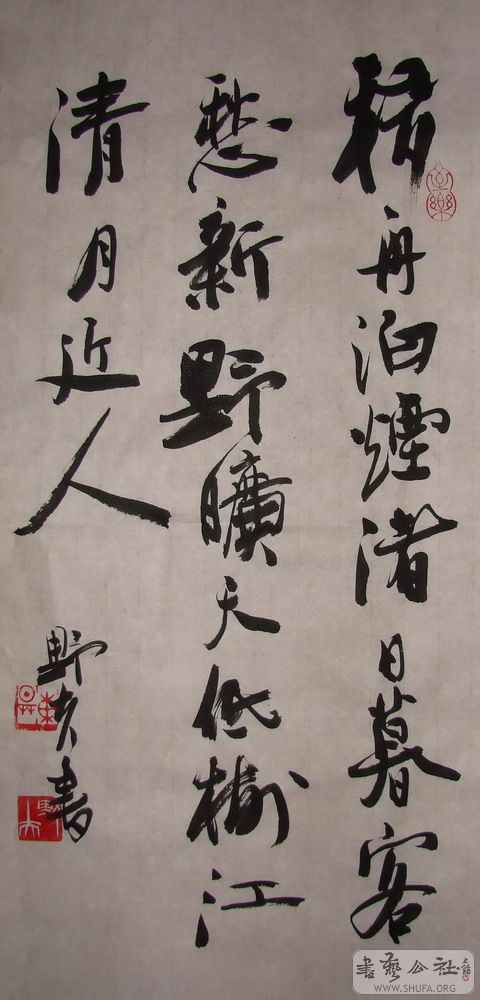 移舟泊煙渚日暮客
愁新野曠天低樹江
清月近人
野夫書
書藝公社
WWW.SHUFA.ORG